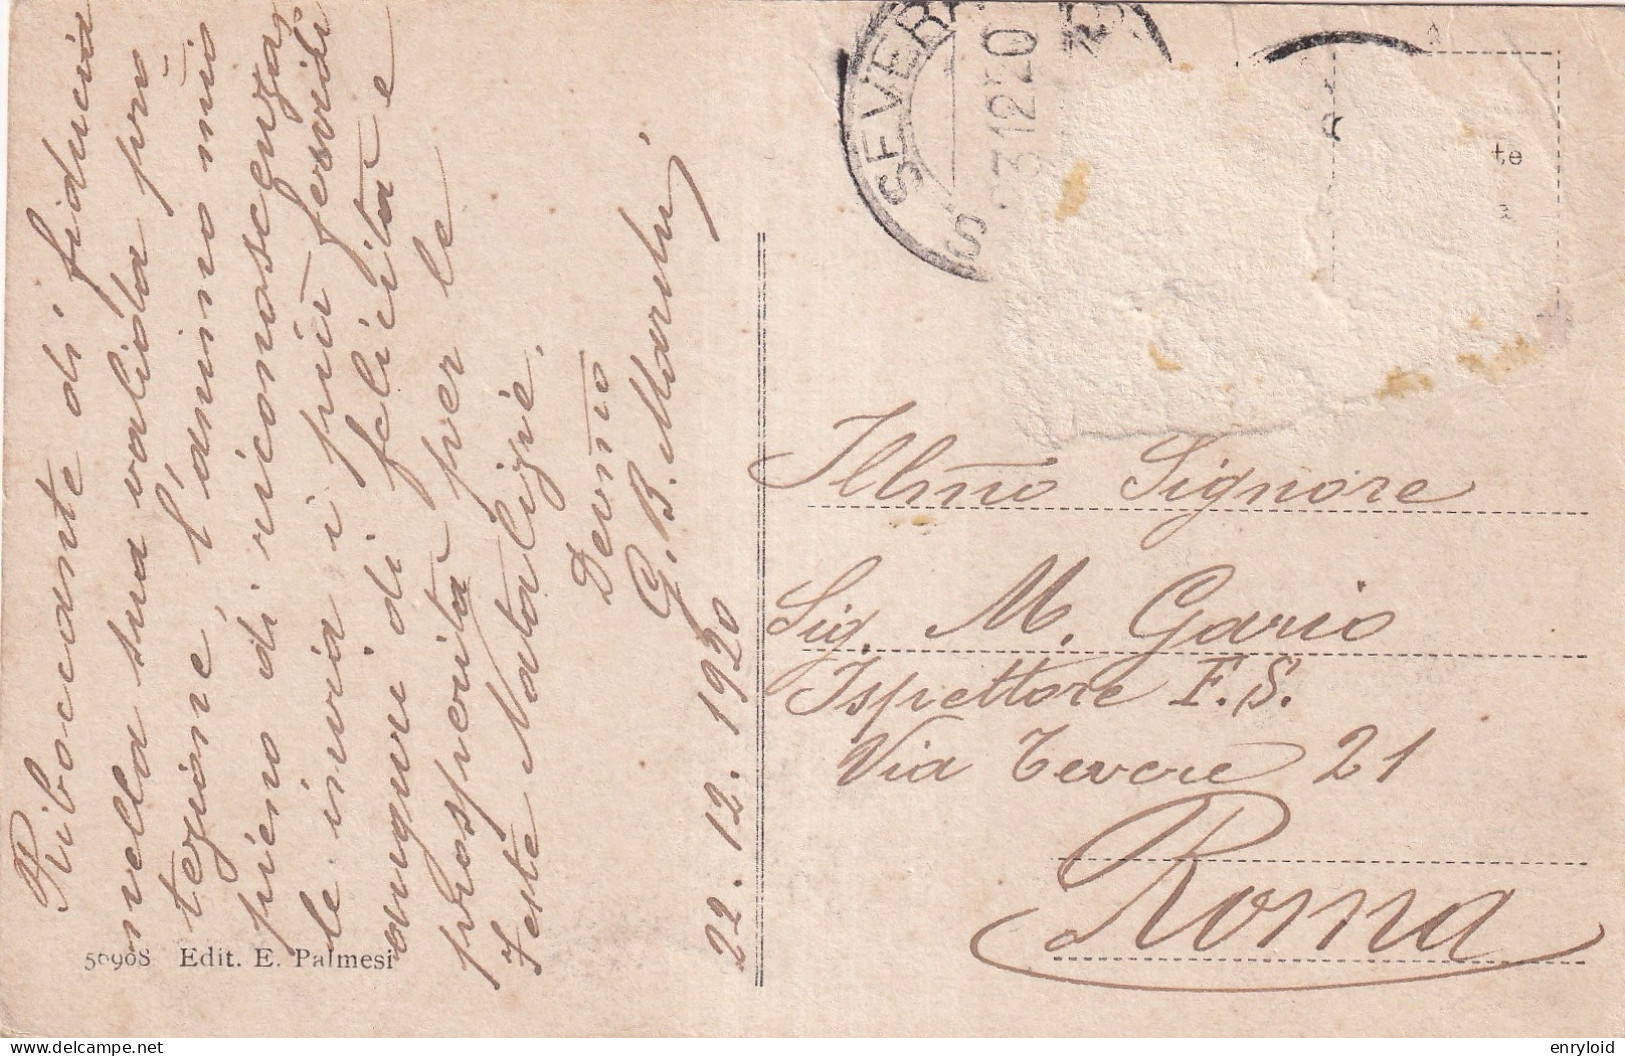 Riboccante di fiducia
nella sua valida pro
tezione, l'animo mio
pieno di riconoscenza,
le invia i più fervidi
auguri di felicità e
prosperità per le
feste Natalizie.
Devmo
G. B.
22.12.1920
50908 Edit. E. Palmesi
S. SEVER
23.12.20
te
a
Illmo Signore
Sig. M. Gario
Ispettore F.S.
Via Tevere 21
Roma
www.delcampe.net
enryloid